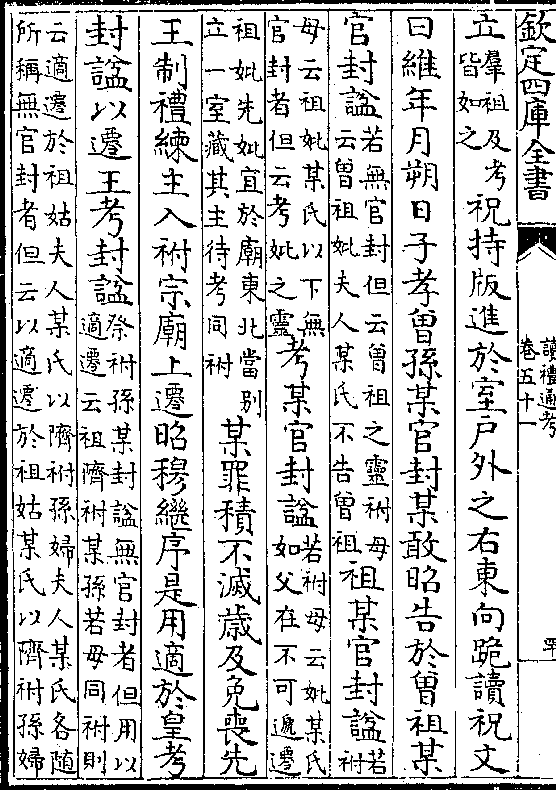 欽定四庫全書
讀禮通考
卷五十一
立羣祖及考皆如之祝持版進於室戶外之右東向跪讀祝文
曰維年月朔日子孝曾孫某官封某敢昭告於曾祖某
官封諡若無官封但云曾祖之靈祔母云曾祖妣夫人某氏不告曾祖祖某官封諡若祔
母云祖妣某氏以下無官封者但云考妣之靈考某官封諡若祔母云妣某氏如父在不可遞遷
祖妣先妣宜於廟東北當別立一室藏其主待考同祔某罪積不滅歲及免喪先
王制禮練主入祔宗廟上遷昭穆繼序是用適於皇考
封諡以遷王考封諡祭祔孫某封諡無官封者但用以適遷云祖隮祔某孫若母同祔則
云適遷於祖姑夫人某氏以隮祔孫婦夫人某氏各隨所稱無官封者但云以適遷於祖姑某氏以隮祔孫婦